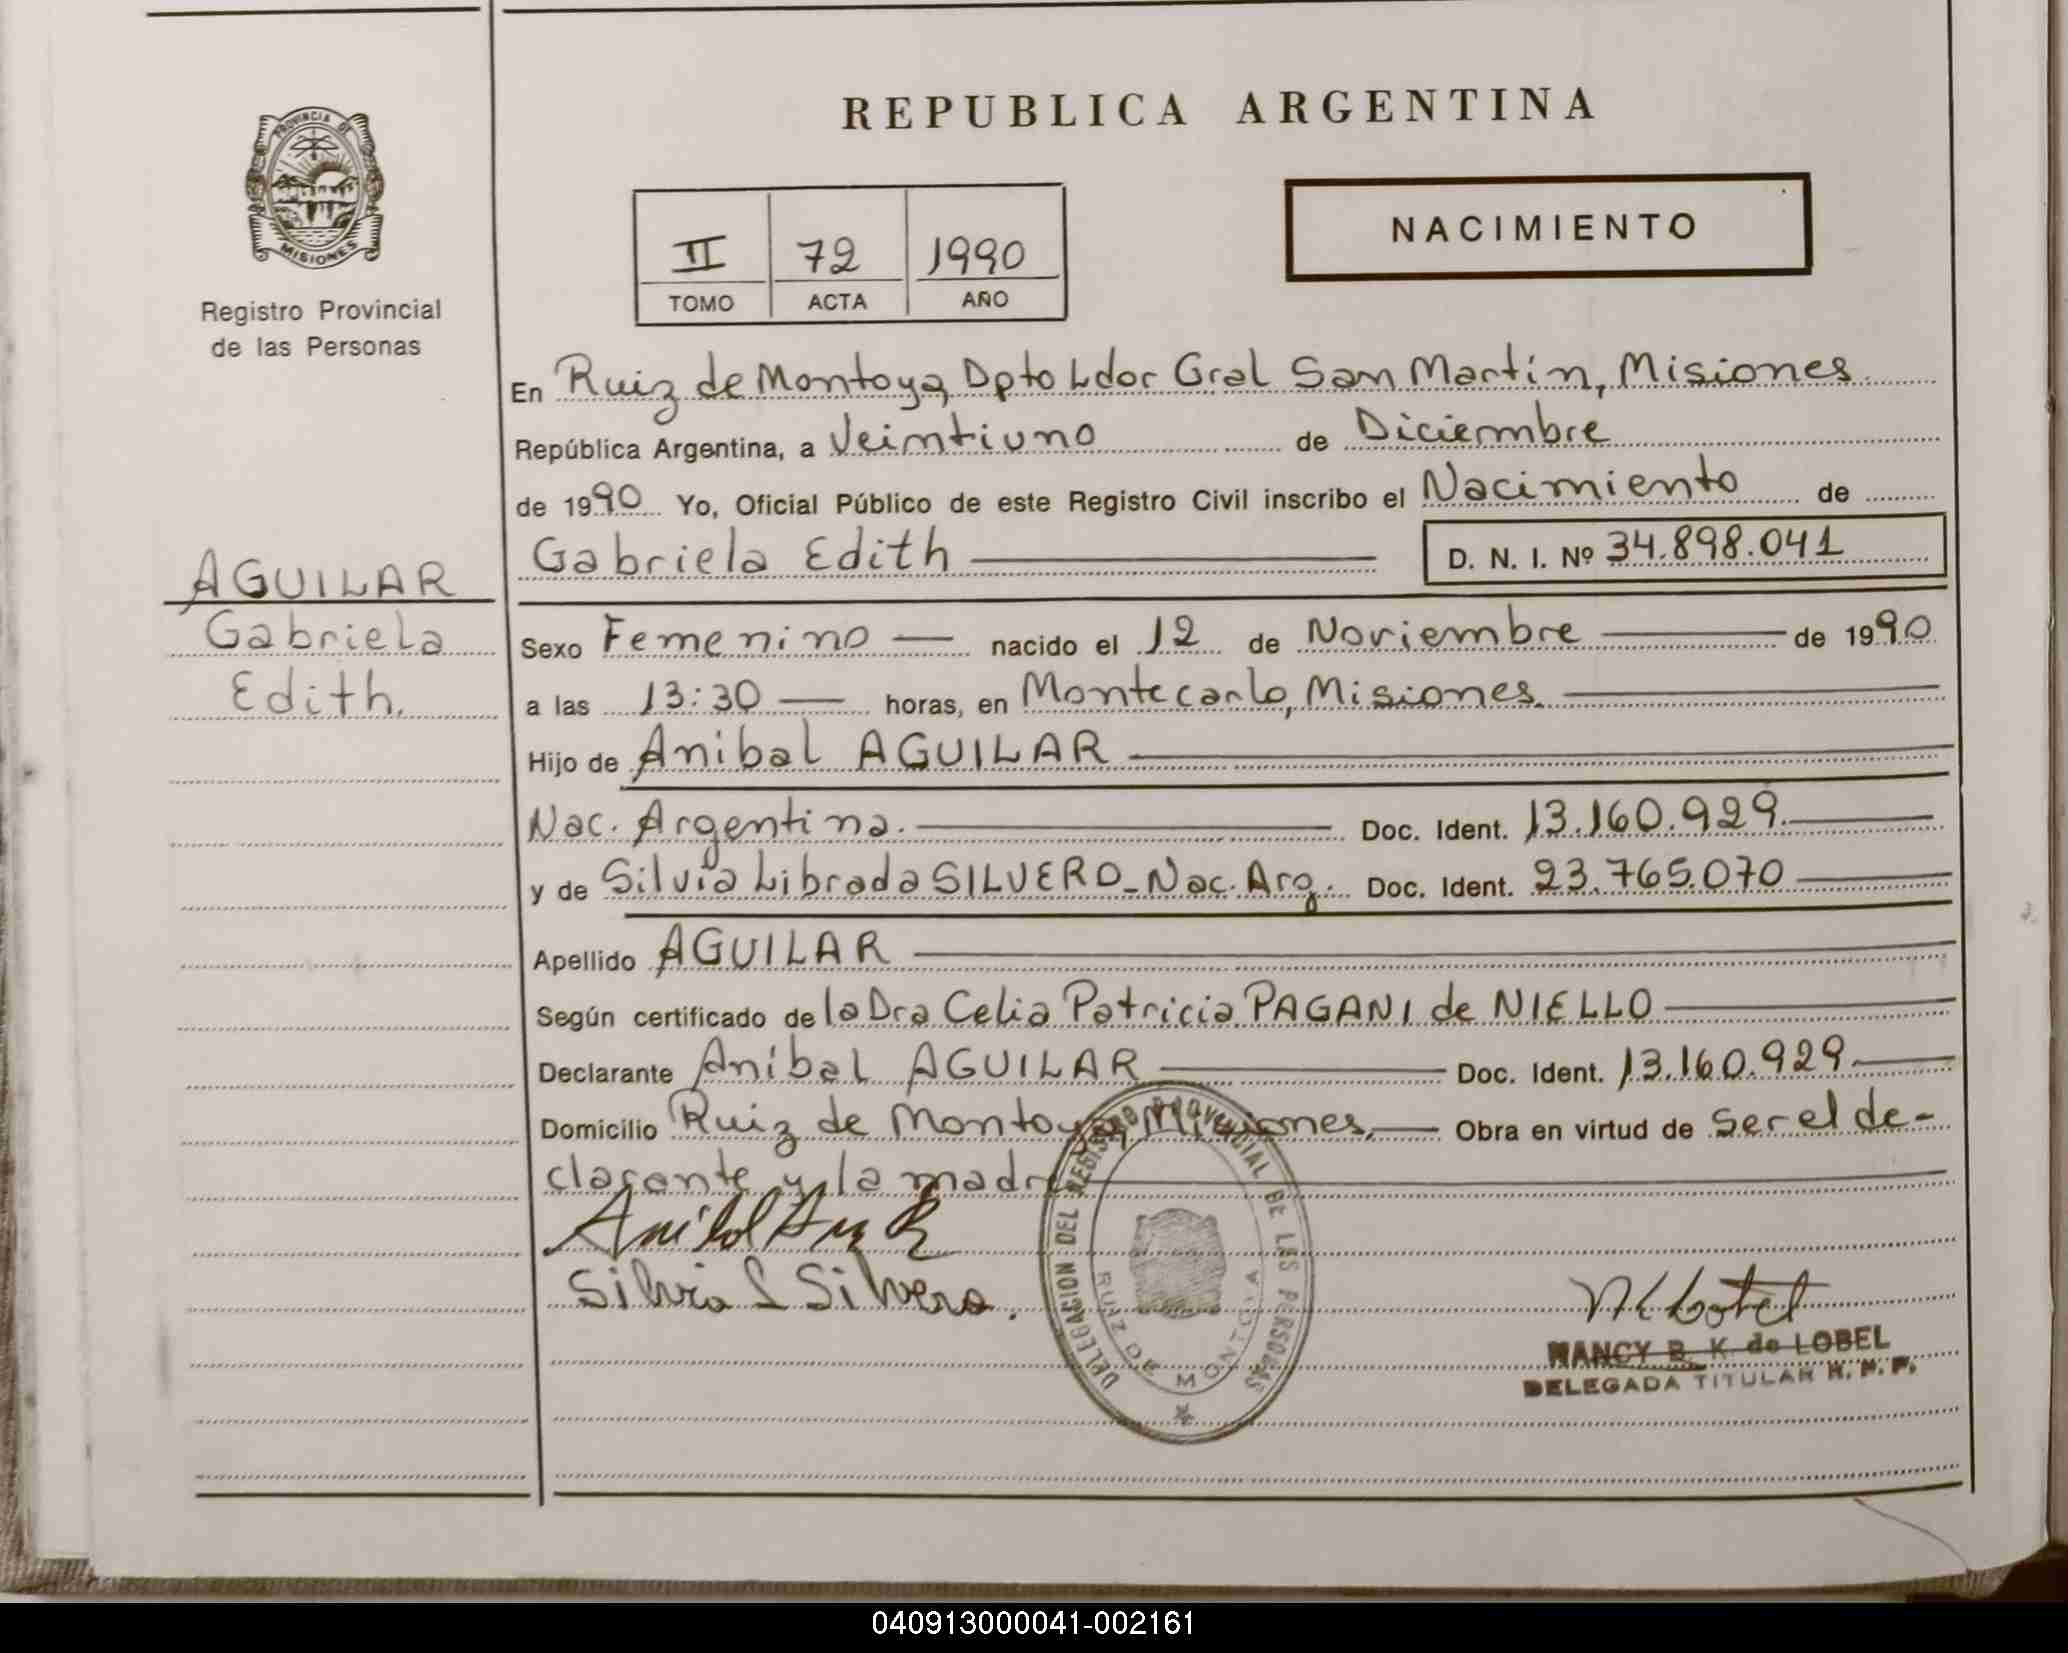 PROVINCIA DE
MISIONES
Registro Provincial
de las Personas
AGUILAR
Gabriela
Edith.
REPUBLICA ARGENTINA
II 72 1990
TOMO ACTA AÑO
NACIMIENTO
En Ruiz de Montoya, Dpto Ldor Gral San Martín, Misiones
República Argentina, a Veintiuno de Diciembre
de 1990 Yo, Oficial Público de este Registro Civil inscribo el Nacimiento de
Gabriela Edith D. N. I. Nº 34.898.041
Sexo Femenino nacido el 12 de Noviembre de 1990
a las 13:30 horas, en Montecarlo, Misiones.
Hijo de Anibal AGUILAR
Nac. Argentina. Doc. Ident. 13.160.929.
y de Silvia Librada SILVERO_Nac. Arg. Doc. Ident. 23.765.070
Apellido AGUILAR
Según certificado de la Dra Celia Patricia PAGANI de NIELLO
Declarante Aníbal AGUILAR Doc. Ident. 13.160.929.
Domicilio Ruiz de Montoya, Misiones. Obra en virtud de ser el de-
clarante y la madre
Silvia L Silvero.
DELEGACION DEL REGISTRO PROVINCIAL DE LAS PERSONAS
RUIZ DE MONTOYA
NANCY B. K. de LOBEL
DELEGADA TITULAR R. P. P.
040913000041-002161